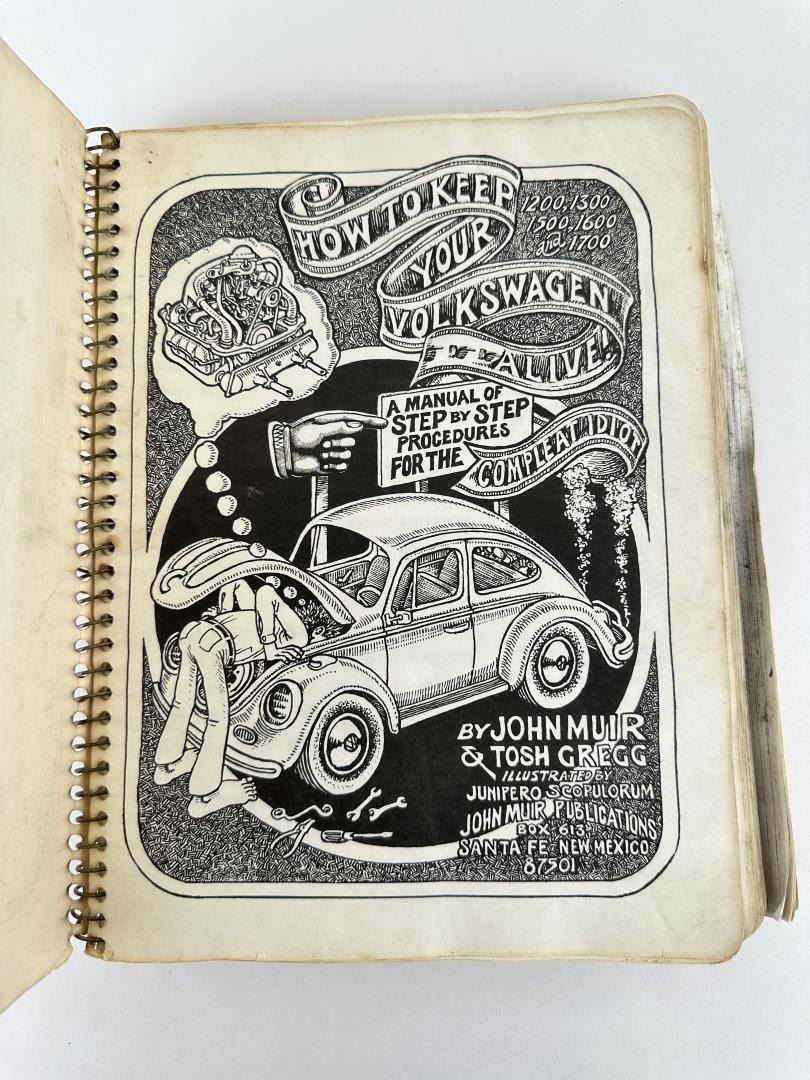 HOW TO KEEP
YOUR
VOLKSWAGEN
ALIVE!
1200, 1300
1500, 1600
and 1700
A MANUAL OF
STEP BY STEP
PROCEDURES
FOR THE
COMPLEAT IDIOT
BY JOHN MUIR
& TOSH GREGG
ILLUSTRATED BY
JUNIPERO SCOPULORUM
JOHN MUIR PUBLICATIONS
BOX 613
SANTA FE NEW MEXICO
87501